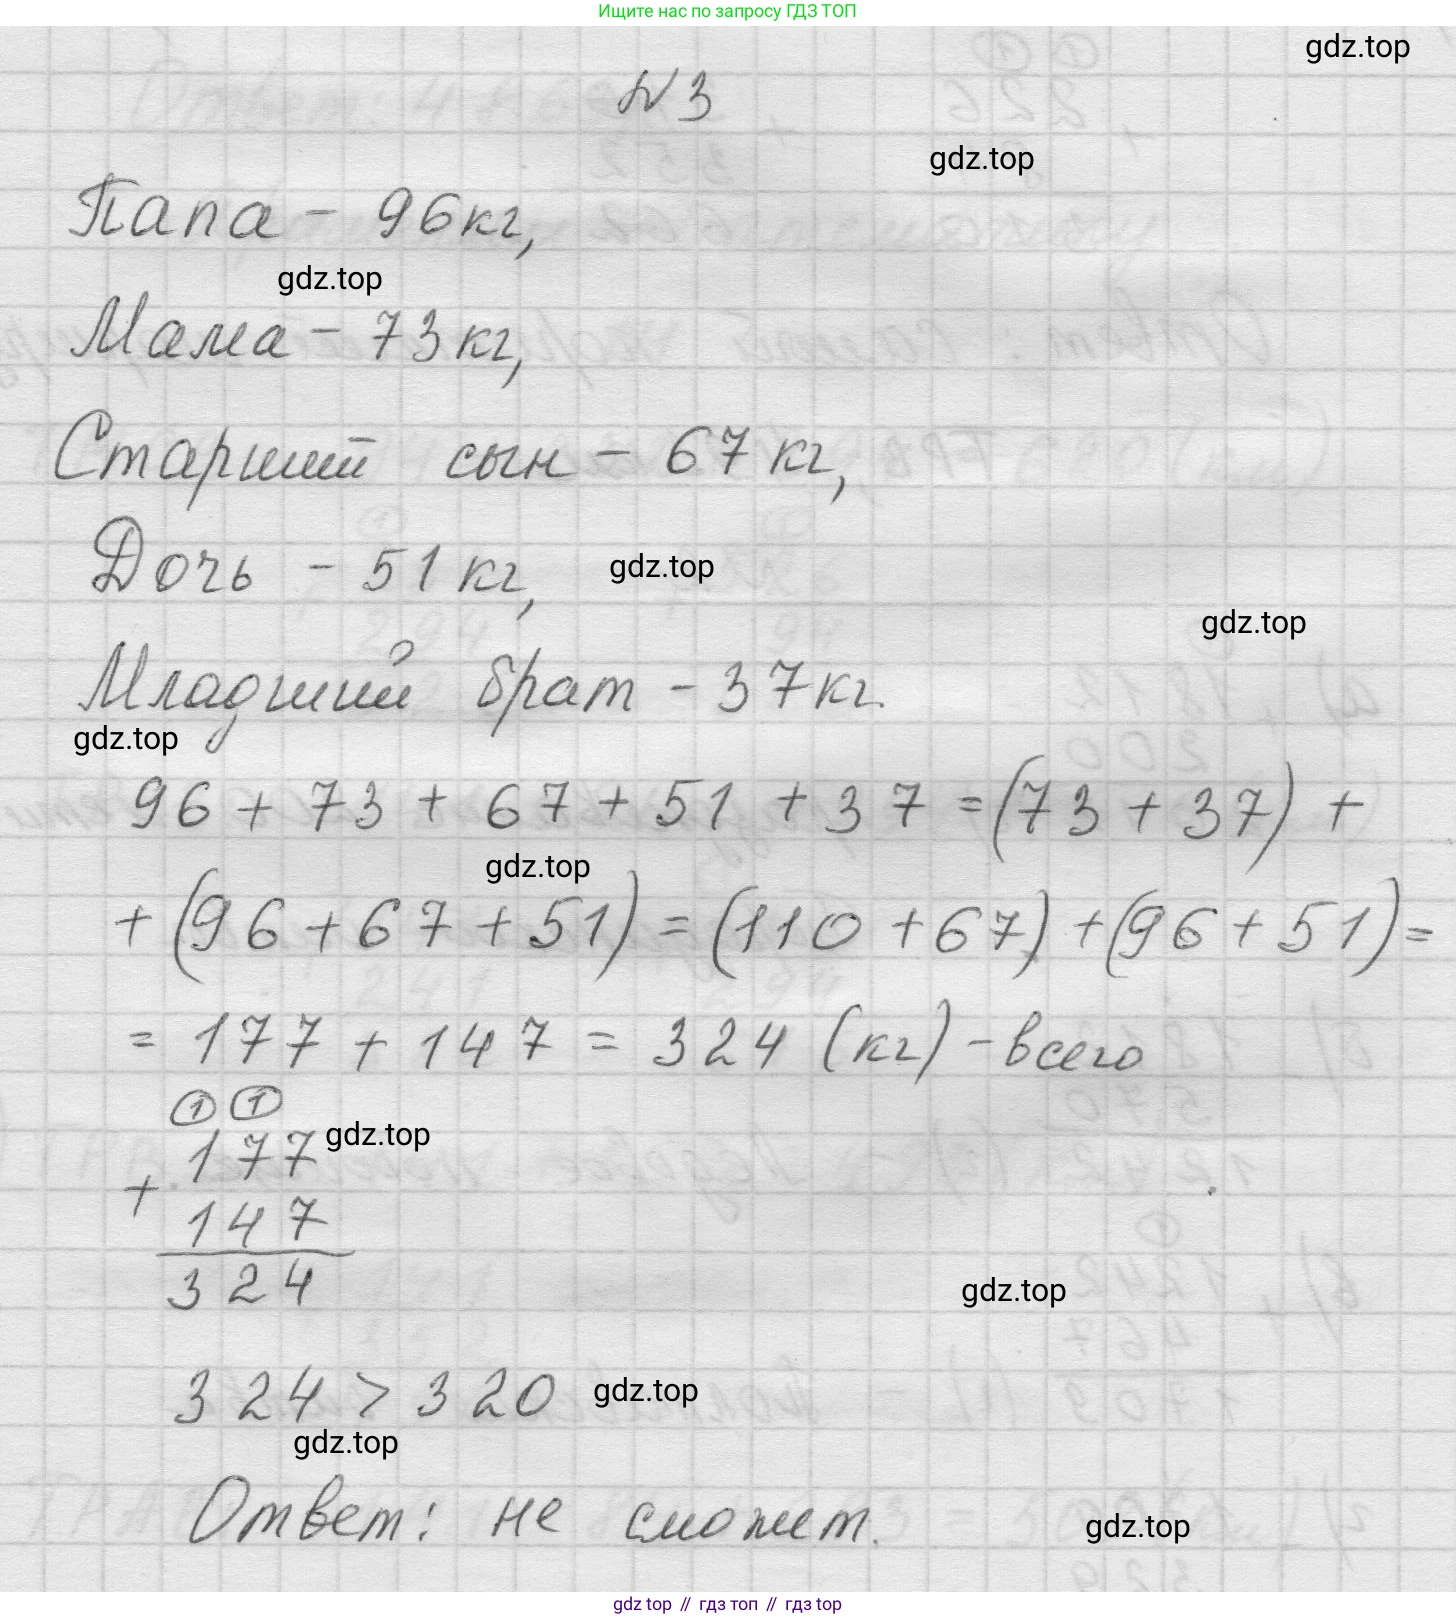 Ищите нас по запросу ГДЗ ТОП
gdz.top
№3
gdz.top
Папа - 96кг,
gdz.top
Мама - 73кг,
Старший сын - 67 кг,
Дочь - 51 кг,
gdz.top
gdz.top
Младший брат - 37кг.
gdz.top
96 + 73 + 67 + 51 + 37 = (73 + 37) +
gdz.top
+ (96 + 67 + 51) = (110 + 67) + (96 + 51) =
= 177 + 147 = 324 (кг) - всего
1 1
gdz.top
177
+
147
324
gdz.top
324 > 320
gdz.top
gdz.top
Ответ: не сможет.
gdz.top
gdz top // гдз топ // gdz top